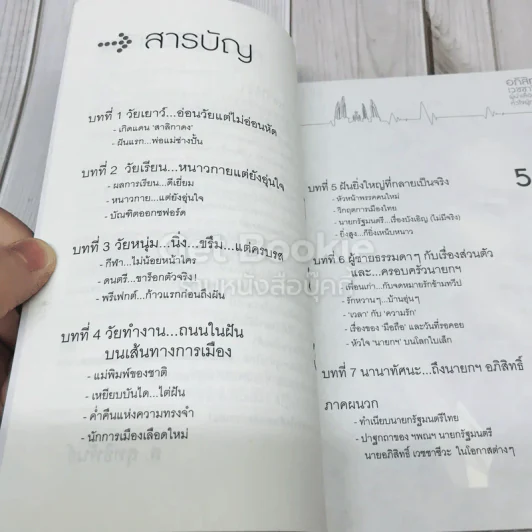 สารบัญ
บทที่ 1 วัยเยาว์...อ่อนวัยแต่ไม่อ่อนหัด
- เกิดแดน "สาลิกาดง"
- ฝันแรก...พ่อแม่ช่างปั้น
บทที่ 2 วัยเรียน...หนาวกายแต่ยังอุ่นใจ
- ผลการเรียน...ดีเยี่ยม
- หนาวกาย...แต่ยังอุ่นใจ
- บัณฑิตออกซฟอร์ด
บทที่ 3 วัยหนุ่ม...นิ่ง...ขรึม...แต่ครบรส
- กีฬา...ไม่น้อยหน้าใคร
- ดนตรี...ขาร็อกตัวจริง!
- พรีเฟกต์...ก้าวแรกก่อนถึงฝัน
บทที่ 4 วัยทำงาน...ถนนในฝัน
บนเส้นทางการเมือง
- แม่พิมพ์ของชาติ
- เหยียบบันได...ไต่ฝัน
- ค่ำคืนแห่งความทรงจำ
- นักการเมืองเลือดใหม่
อภิสิทธิ์
5
บทที่ 5 ฝันยิ่งใหญ่ที่กลายเป็นจริง
- หัวหน้าพรรคคนใหม่
- วิกฤตการเมืองไทย
- นายกรัฐมนตรี...เรื่องบังเอิญ (ไม่มีจริง)
- ยิ่งสูง...ก็ยิ่งเหน็บหนาว
บทที่ 6 ผู้ชายธรรมดาๆ กับเรื่องส่วนตัว
และ...ครอบครัวนายกฯ
- เพื่อนเก่า...กับจดหมายรักข้ามทวีป
- รักหวานๆ...บ้านอุ่นๆ
- "เวลา" กับ "ความรัก"
- เรื่องของ "มือถือ" และวันที่รอคอย
- หัวใจ "นายกฯ" บนโลกใบเล็ก
บทที่ 7 นานาทัศนะ...ถึงนายกฯ อภิสิทธิ์
ภาคผนวก
- ทำเนียบนายกรัฐมนตรีไทย
- ปาฐกถาของ ฯพณฯ นายกรัฐมนตรี
นายอภิสิทธิ์ เวชชาชีวะ ในโอกาสต่างๆ
Get Bookie
ร้านหนังสือบุ๊คกี้